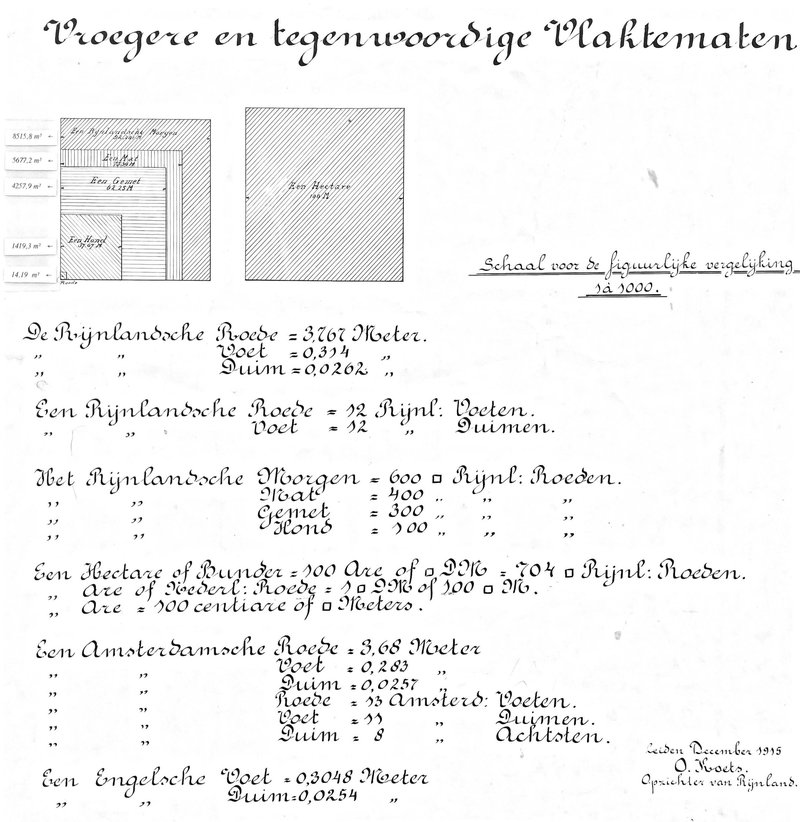 Vroegere en tegenwoordige Vlaktematen
8515,8 m²
Een Rijnlandsche Morgen
5677,2 m²
Een Mat
4257,9 m²
Een Gemet
62.25 M
1419,3 m²
Een Hond
37.67 M
14,19 m²
Roede
Een Hectare
100 M
Schaal voor de figuurlijke vergelijking
1 à 1000.
De Rijnlandsche Roede = 3,767 Meter.
„ „ Voet = 0,314 „
„ „ Duim = 0,0262 „
Een Rijnlandsche Roede = 12 Rijnl: Voeten.
„ „ Voet = 12 „ Duimen.
Het Rijnlandsche Morgen = 600 □ Rijnl: Roeden.
„ „ Mat = 400 „ „ „
„ „ Gemet = 300 „ „ „
„ „ Hond = 100 „ „ „
Een Hectare of Bunder = 100 Are of □ DM = 704 □ Rijnl: Roeden.
„ Are of Nederl: Roede = 1 □ DM of 100 □ M.
„ Are = 100 centiare of □ Meters.
Een Amsterdamsche Roede = 3,68 Meter
„ „ Voet = 0,283 „
„ „ Duim = 0,0257 „
„ „ Roede = 13 Amsterd: Voeten.
„ „ Voet = 11 „ Duimen.
„ „ Duim = 8 „ Achtsten.
Een Engelsche Voet = 0,3048 Meter
„ „ Duim = 0,0254 „
Leiden December 1915
O. Koets.
Opzichter van Rijnland.